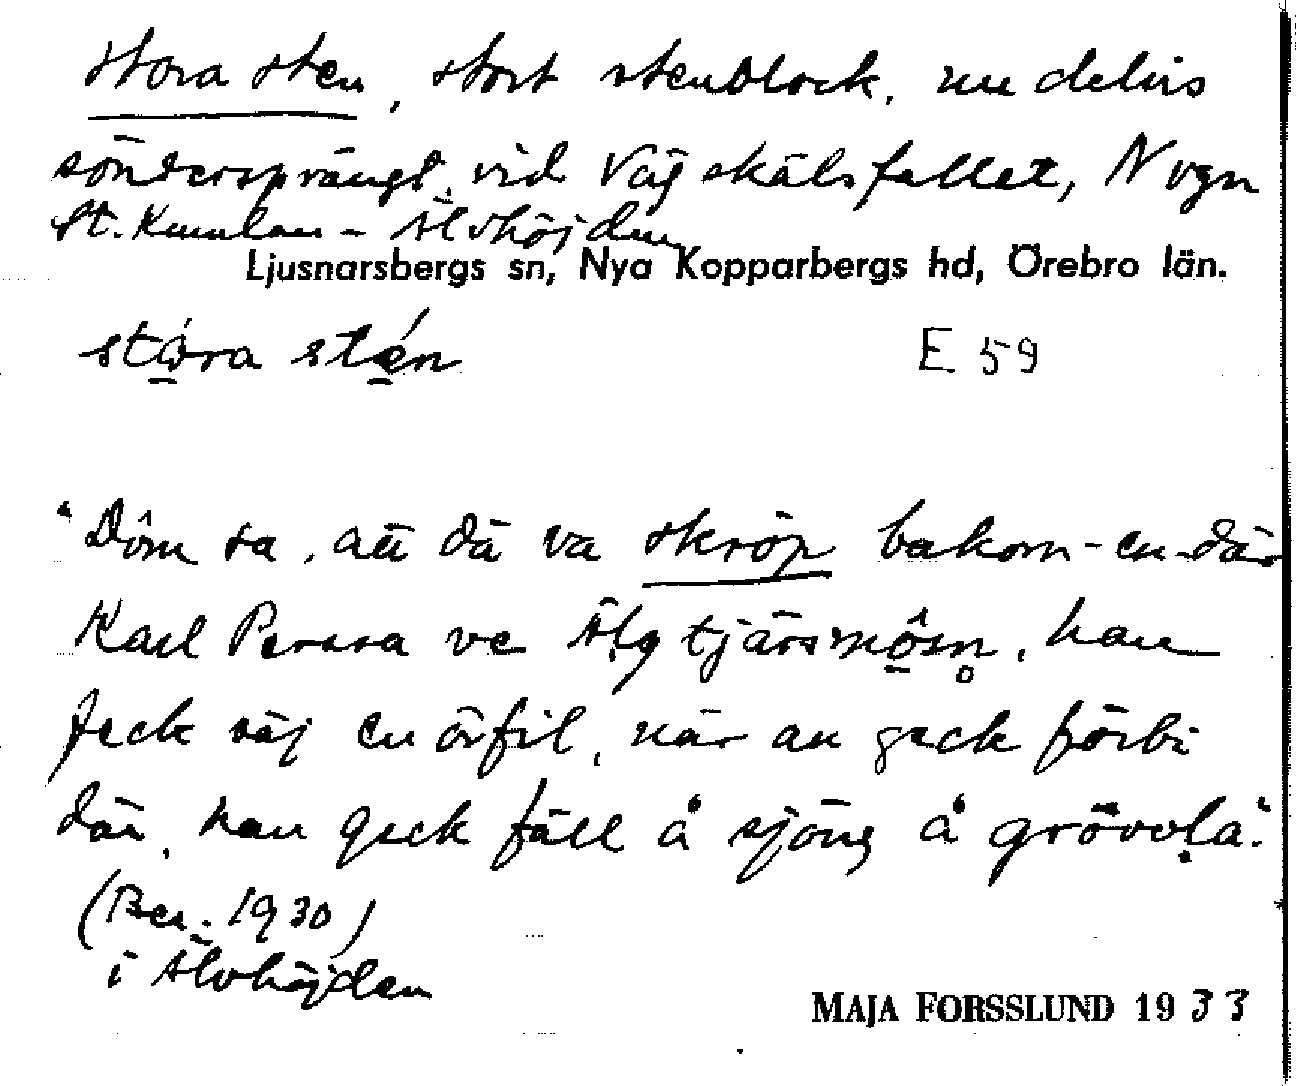 Stora sten, stort stenblock, nu delvis
söndersprängt, vid Vägskälsfallet, N vgn
St. Kumlan - Älvhöjden
Ljusnarsbergs sn, Nya Kopparbergs hd, Örebro län.
stóra stén
E 59
"Dôm sa, att dä va skröp bakom-en-där
Karl Persra ve Älgtjärsmôsn, han
feck säj en örfil, när an geck förbi
där, han geck fäll å sjöng å grövvla."
(Ber. 1930)
i Älvhöjden
MAJA FORSSLUND 1933